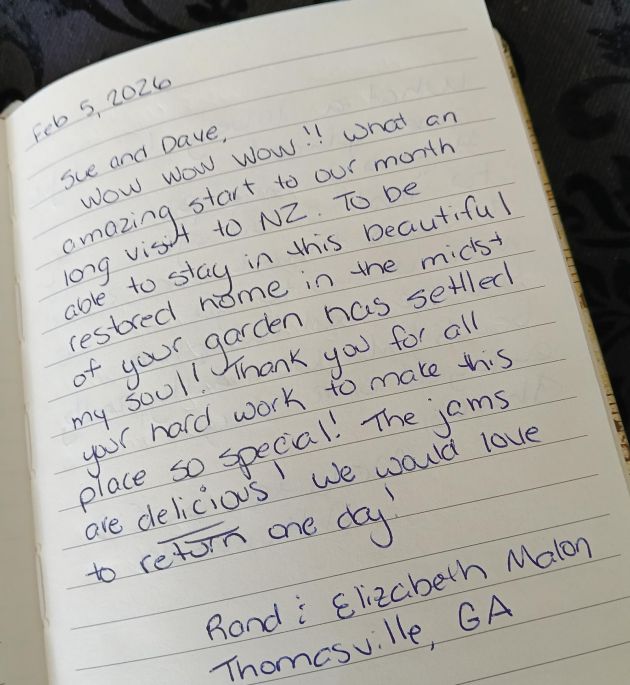 Feb 5, 2026
Sue and Dave,
WOW WOW WOW!! What an
amazing start to our month
long visit to NZ. To be
able to stay in this beautiful
restored home in the midst
of your garden has settled
my soul! Thank you for all
your hard work to make this
place so special! The jams
are delicious! We would love
to return one day!
Rand & Elizabeth Malon
Thomasville, GA